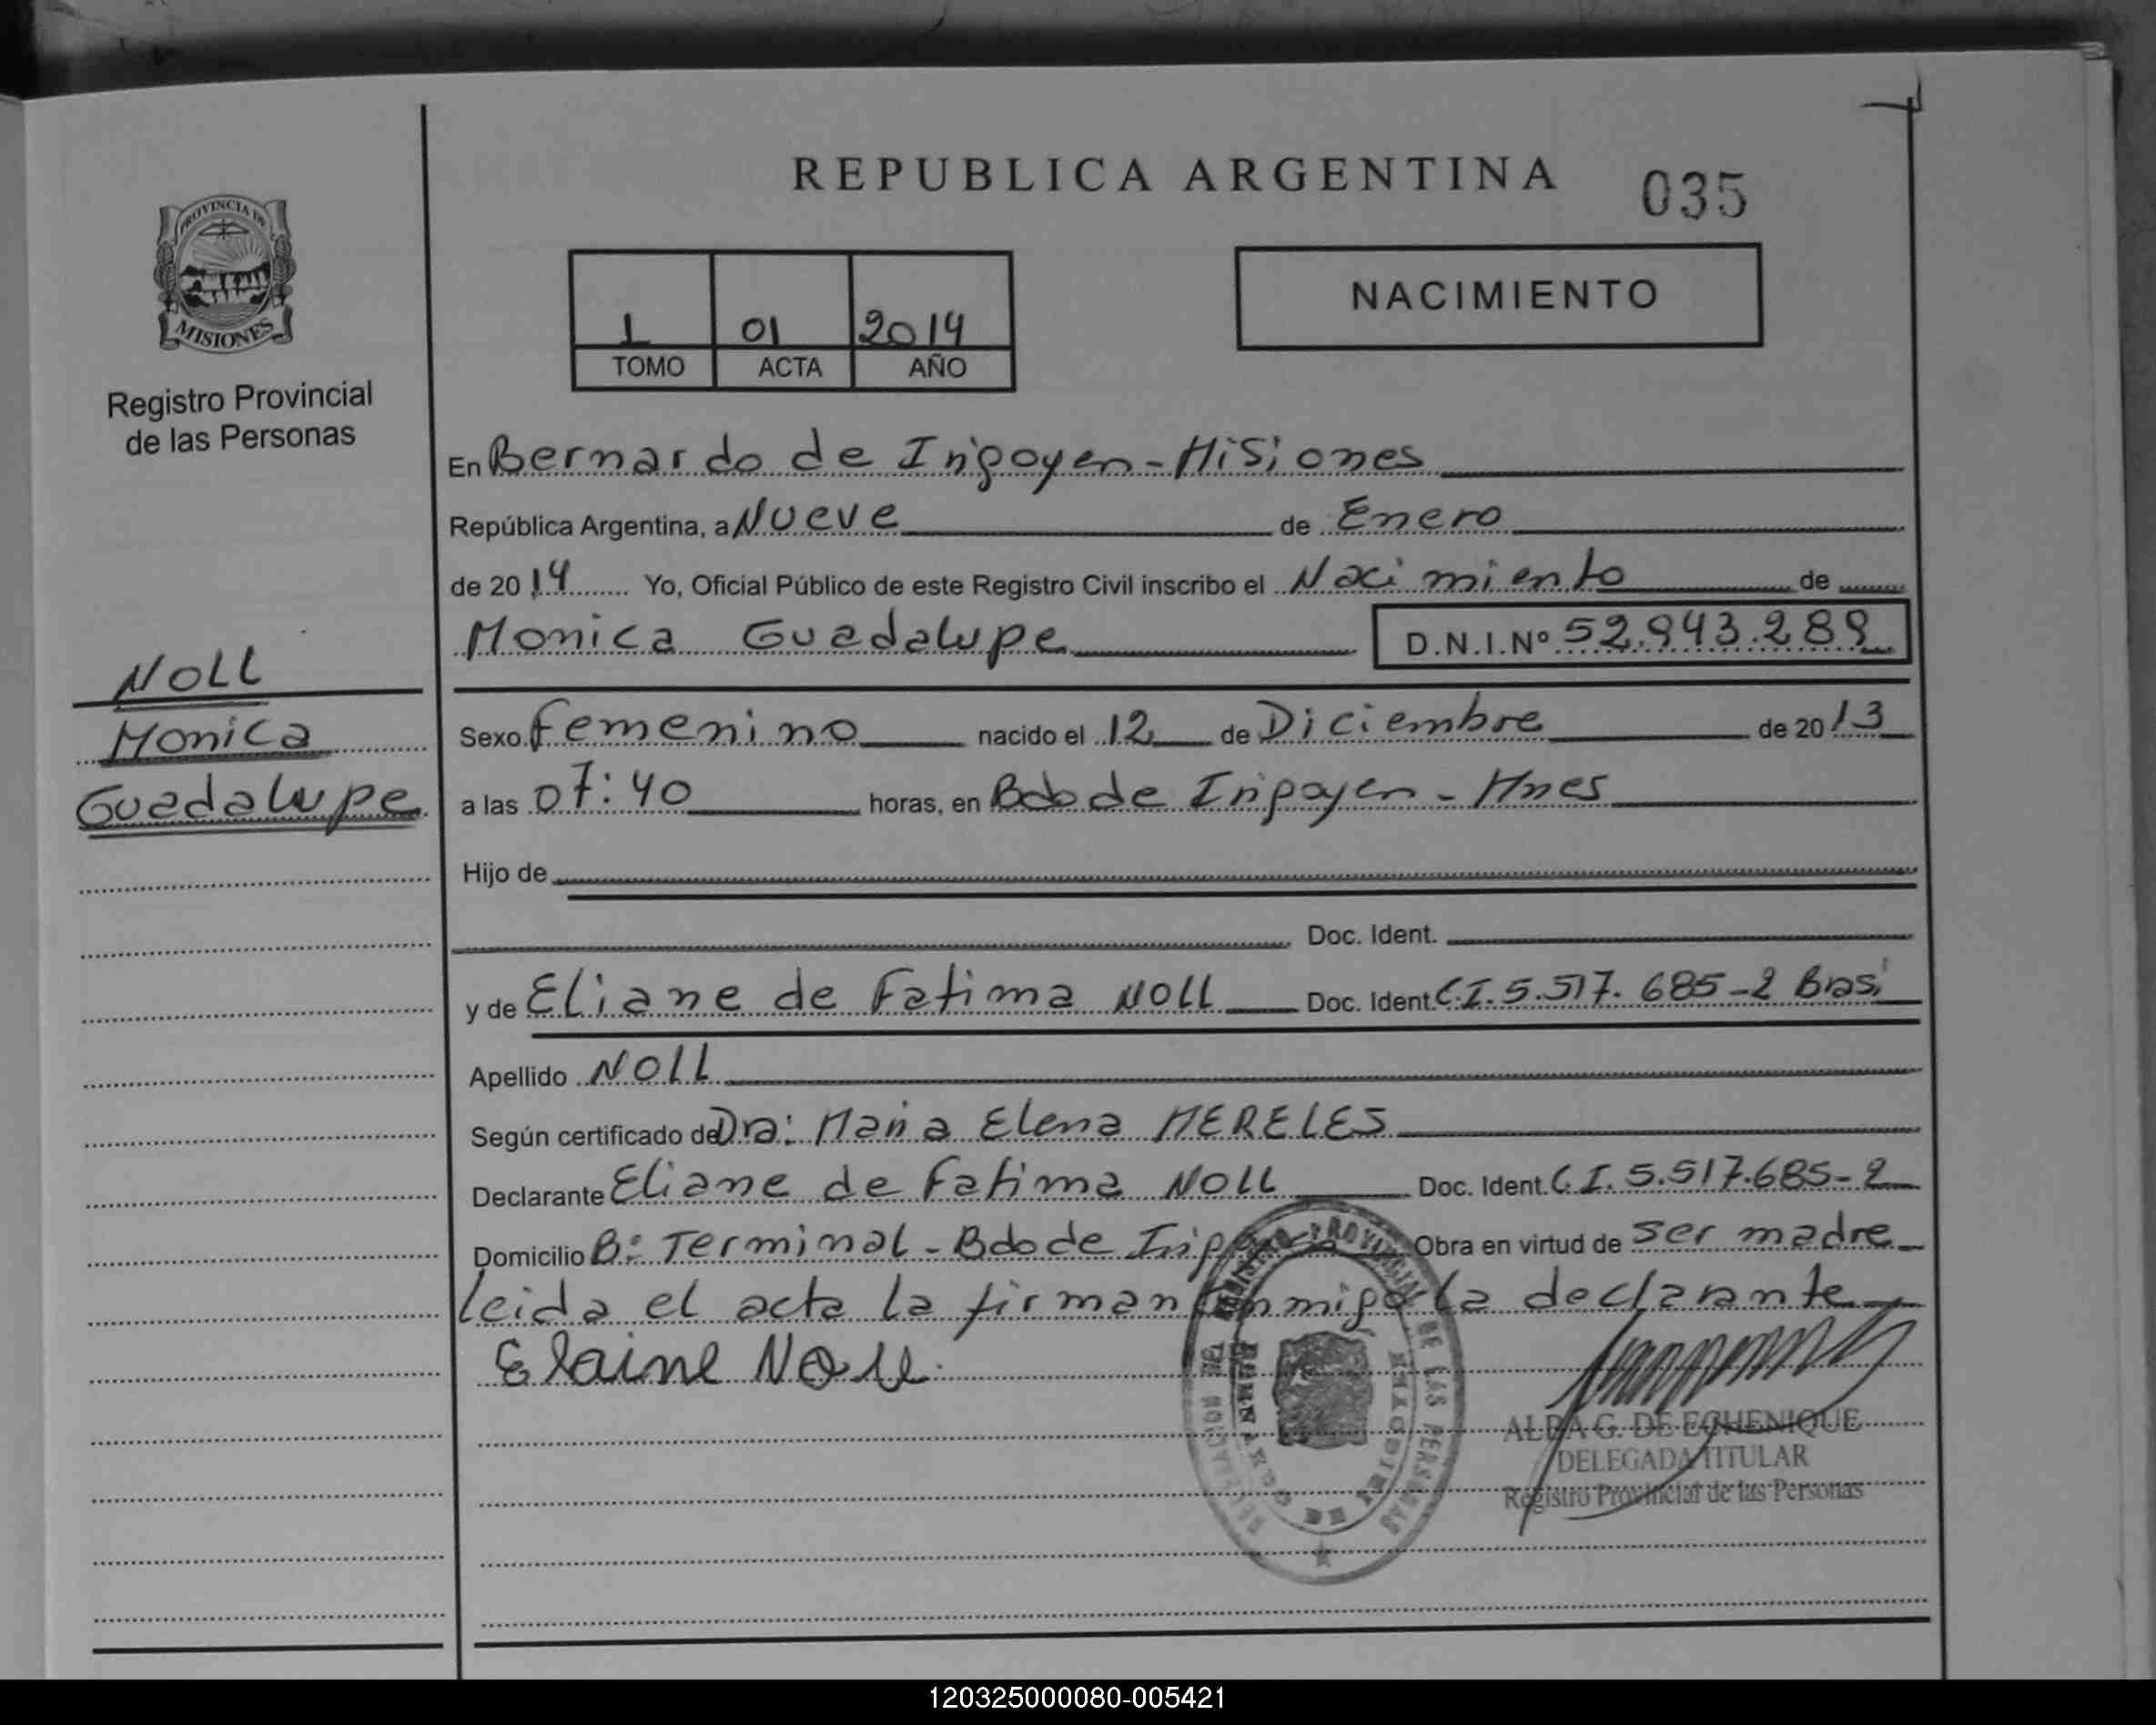 REPUBLICA ARGENTINA
035
PROVINCIA DE
MISIONES
Registro Provincial
de las Personas
1 01 2014
TOMO ACTA AÑO
NACIMIENTO
En Bernardo de Irigoyen - Misiones
República Argentina, a Nueve de Enero
de 2014 Yo, Oficial Público de este Registro Civil inscribo el Nacimiento de
Monica Guadalupe D.N.I.Nº 52.943.289
NOLL
Monica
Guadalupe
Sexo Femenino nacido el 12 de Diciembre de 2013
a las 07:40 horas, en Bdo de Irigoyen - Mnes
Hijo de
Doc. Ident.
y de Eliane de Fatima NOLL Doc. Ident. C.I. 5.517.685-2 Bras
Apellido NOLL
Según certificado de Dra: Maria Elena MERELES
Declarante Eliane de Fatima NOLL Doc. Ident. C.I. 5.517.685-2
Domicilio Bº Terminal - Bdo de Irigoyen Obra en virtud de ser madre
leida el acta la firman conmigo la declarante
Elaine Noll
REGISTRO PROVINCIAL DE LAS PERSONAS
ALBA G. DE ECHENIQUE
DELEGADA TITULAR
Registro Provincial de las Personas
120325000080-005421